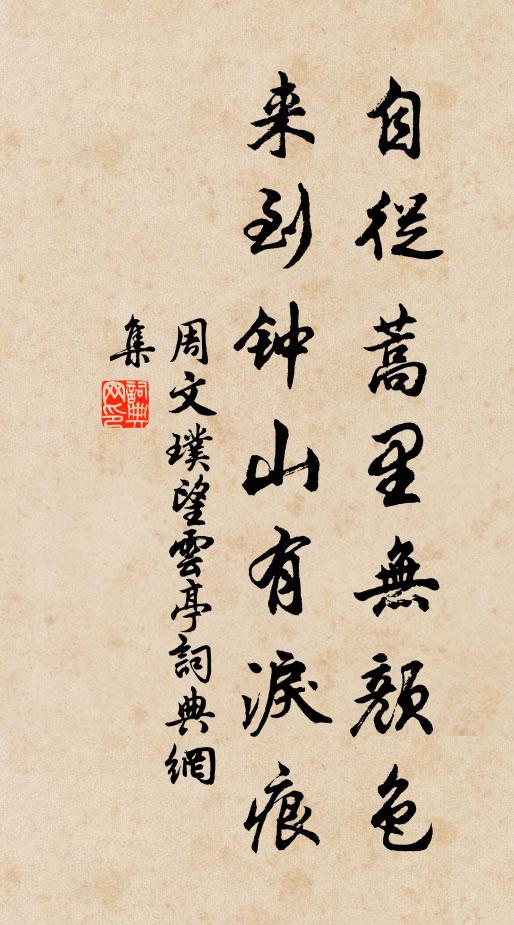 自從蒿里無顏色
来到钟山有淚痕
周文璞望雲亭詞典網
集
詞典網印